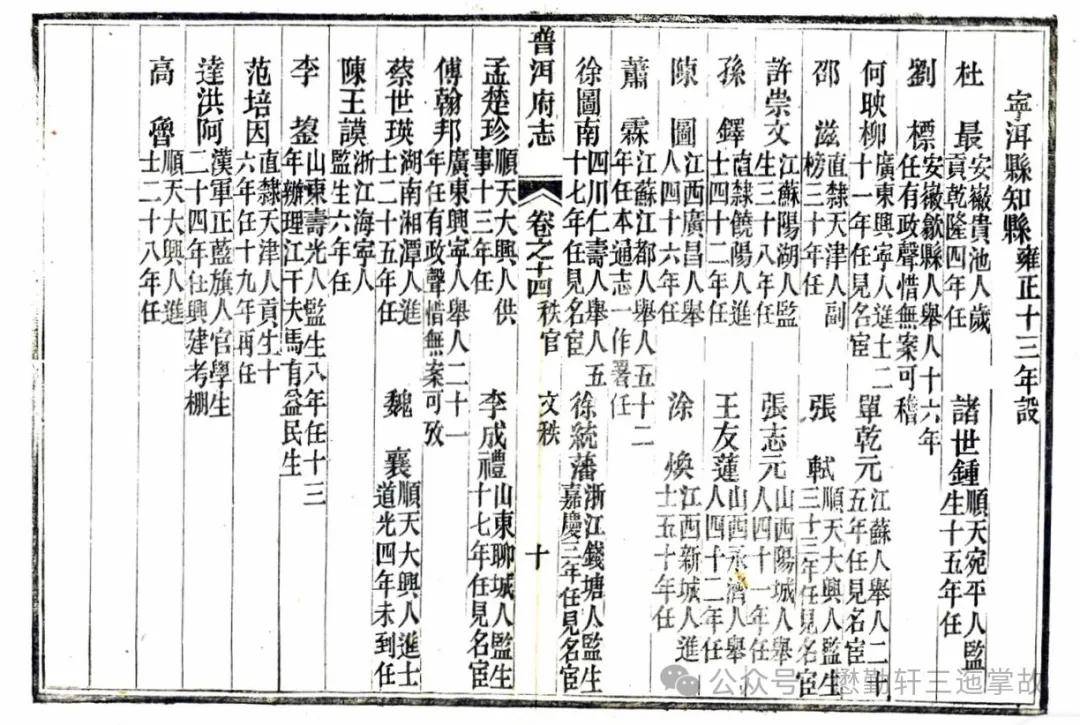 寧洱縣知縣雍正十三年設
杜最安徽貴池人歲貢乾隆四年任 諸世鍾順天宛平人監生十五年任
劉標安徽歙縣人舉人十六年任有政聲惜無案可稽
何映柳廣東興寧人進士二十一年任見名宦 單乾元江蘇人舉人二十五年任見名宦
邵滋直隸天津人副榜三十年任 張軾順天大興人監生三十三年任見名宦
許崇文江蘇陽湖人監生三十八年任 張志元山西陽城人舉人四十一年任
孫鐸直隸饒陽人進士四十二年任 王友蓮山西永濟人舉人四十二年任
陳圖江西廣昌人舉人四十六年任 涂煥江西新城人進士五十年任
蕭霖江蘇江都人舉人五十二年任本通志一作署任
徐圖南四川仁壽人舉人五十七年任見名宦 徐統藩浙江錢塘人監生嘉慶三年任見名宦
普洱府志 卷之十四 秩官 文秩 十
孟楚珍順天大興人供事十三年任 李成禮山東聊城人監生十七年任見名宦
傅翰邦廣東興寧人舉人二十一年任有政聲惜無案可攷
蔡世瑛湖南湘潭人進士二十五年任 魏襄順天大興人進士道光四年未到任
陳王謨浙江海寧人監生六年任
李鋆山東壽光人監生八年任十三年辦理江干夫馬有益民生
范培因直隸天津人貢生十六年任十九年再任
達洪阿漢軍正藍旗人官學生二十四年任興建考棚
高魯順天大興人進士二十八年任
公众号·懋勤轩三迤掌故